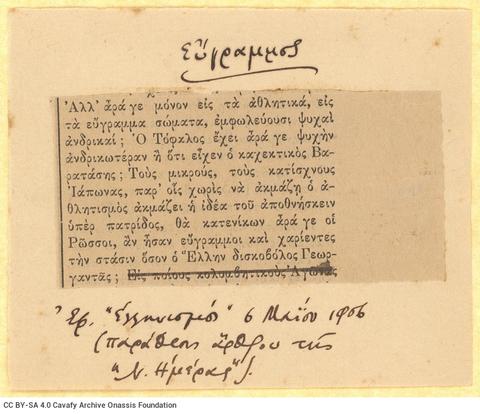 εὔγραμμος
Ἀλλ' ἆρά γε μόνον εἰς τὰ ἀθλητικά, εἰς
τὰ εὔγραμμα σώματα, ἐμφωλεύουσι ψυχαὶ
ἀνδρικαί; Ὁ Τόφαλος ἔχει ἆρά γε ψυχὴν
ἀνδρικωτέραν ἢ ὅτι εἶχεν ὁ καχεκτικὸς Βα-
ρατάσης; Τοὺς μικρούς, τοὺς κατίσχνους
Ἰάπωνας, παρ' οἷς χωρὶς νὰ ἀκμάζῃ ὁ ἀ-
θλητισμὸς ἀκμάζει ἡ ἰδέα τοῦ ἀποθνήσκειν
ὑπὲρ πατρίδος, θὰ κατενίκων ἆρά γε οἱ
Ρῶσσοι, ἂν ἦσαν εὔγραμμοι καὶ χαρίεντες
τὴν στάσιν ὅσον ὁ Ἕλλην δισκοβόλος Γεωρ-
γαντᾶς; Εἰς ποίους κολυμβητικοὺς Ἀγῶνας
Ἐφ. "Ἑλληνισμός" 6 Μαΐου 1906
(παράθεσις ἄρθρου τῆς
"Ν. Ἡμέρας").
CC BY-SA 4.0 Cavafy Archive Onassis Foundation